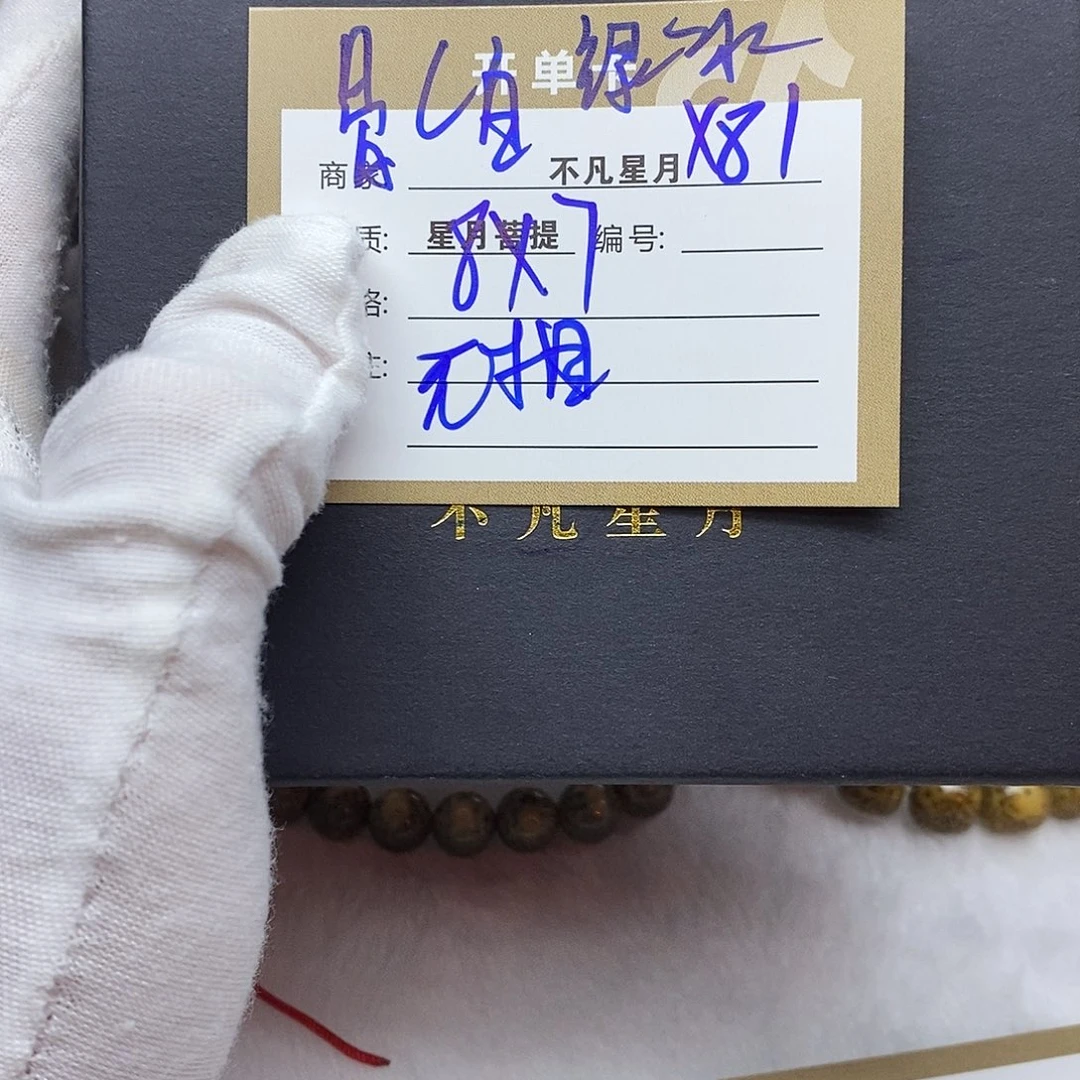 开单卡
绿 X81
商家 不凡星月
质: 星月菩提 编号:
8X7
格:
主:
不凡星月